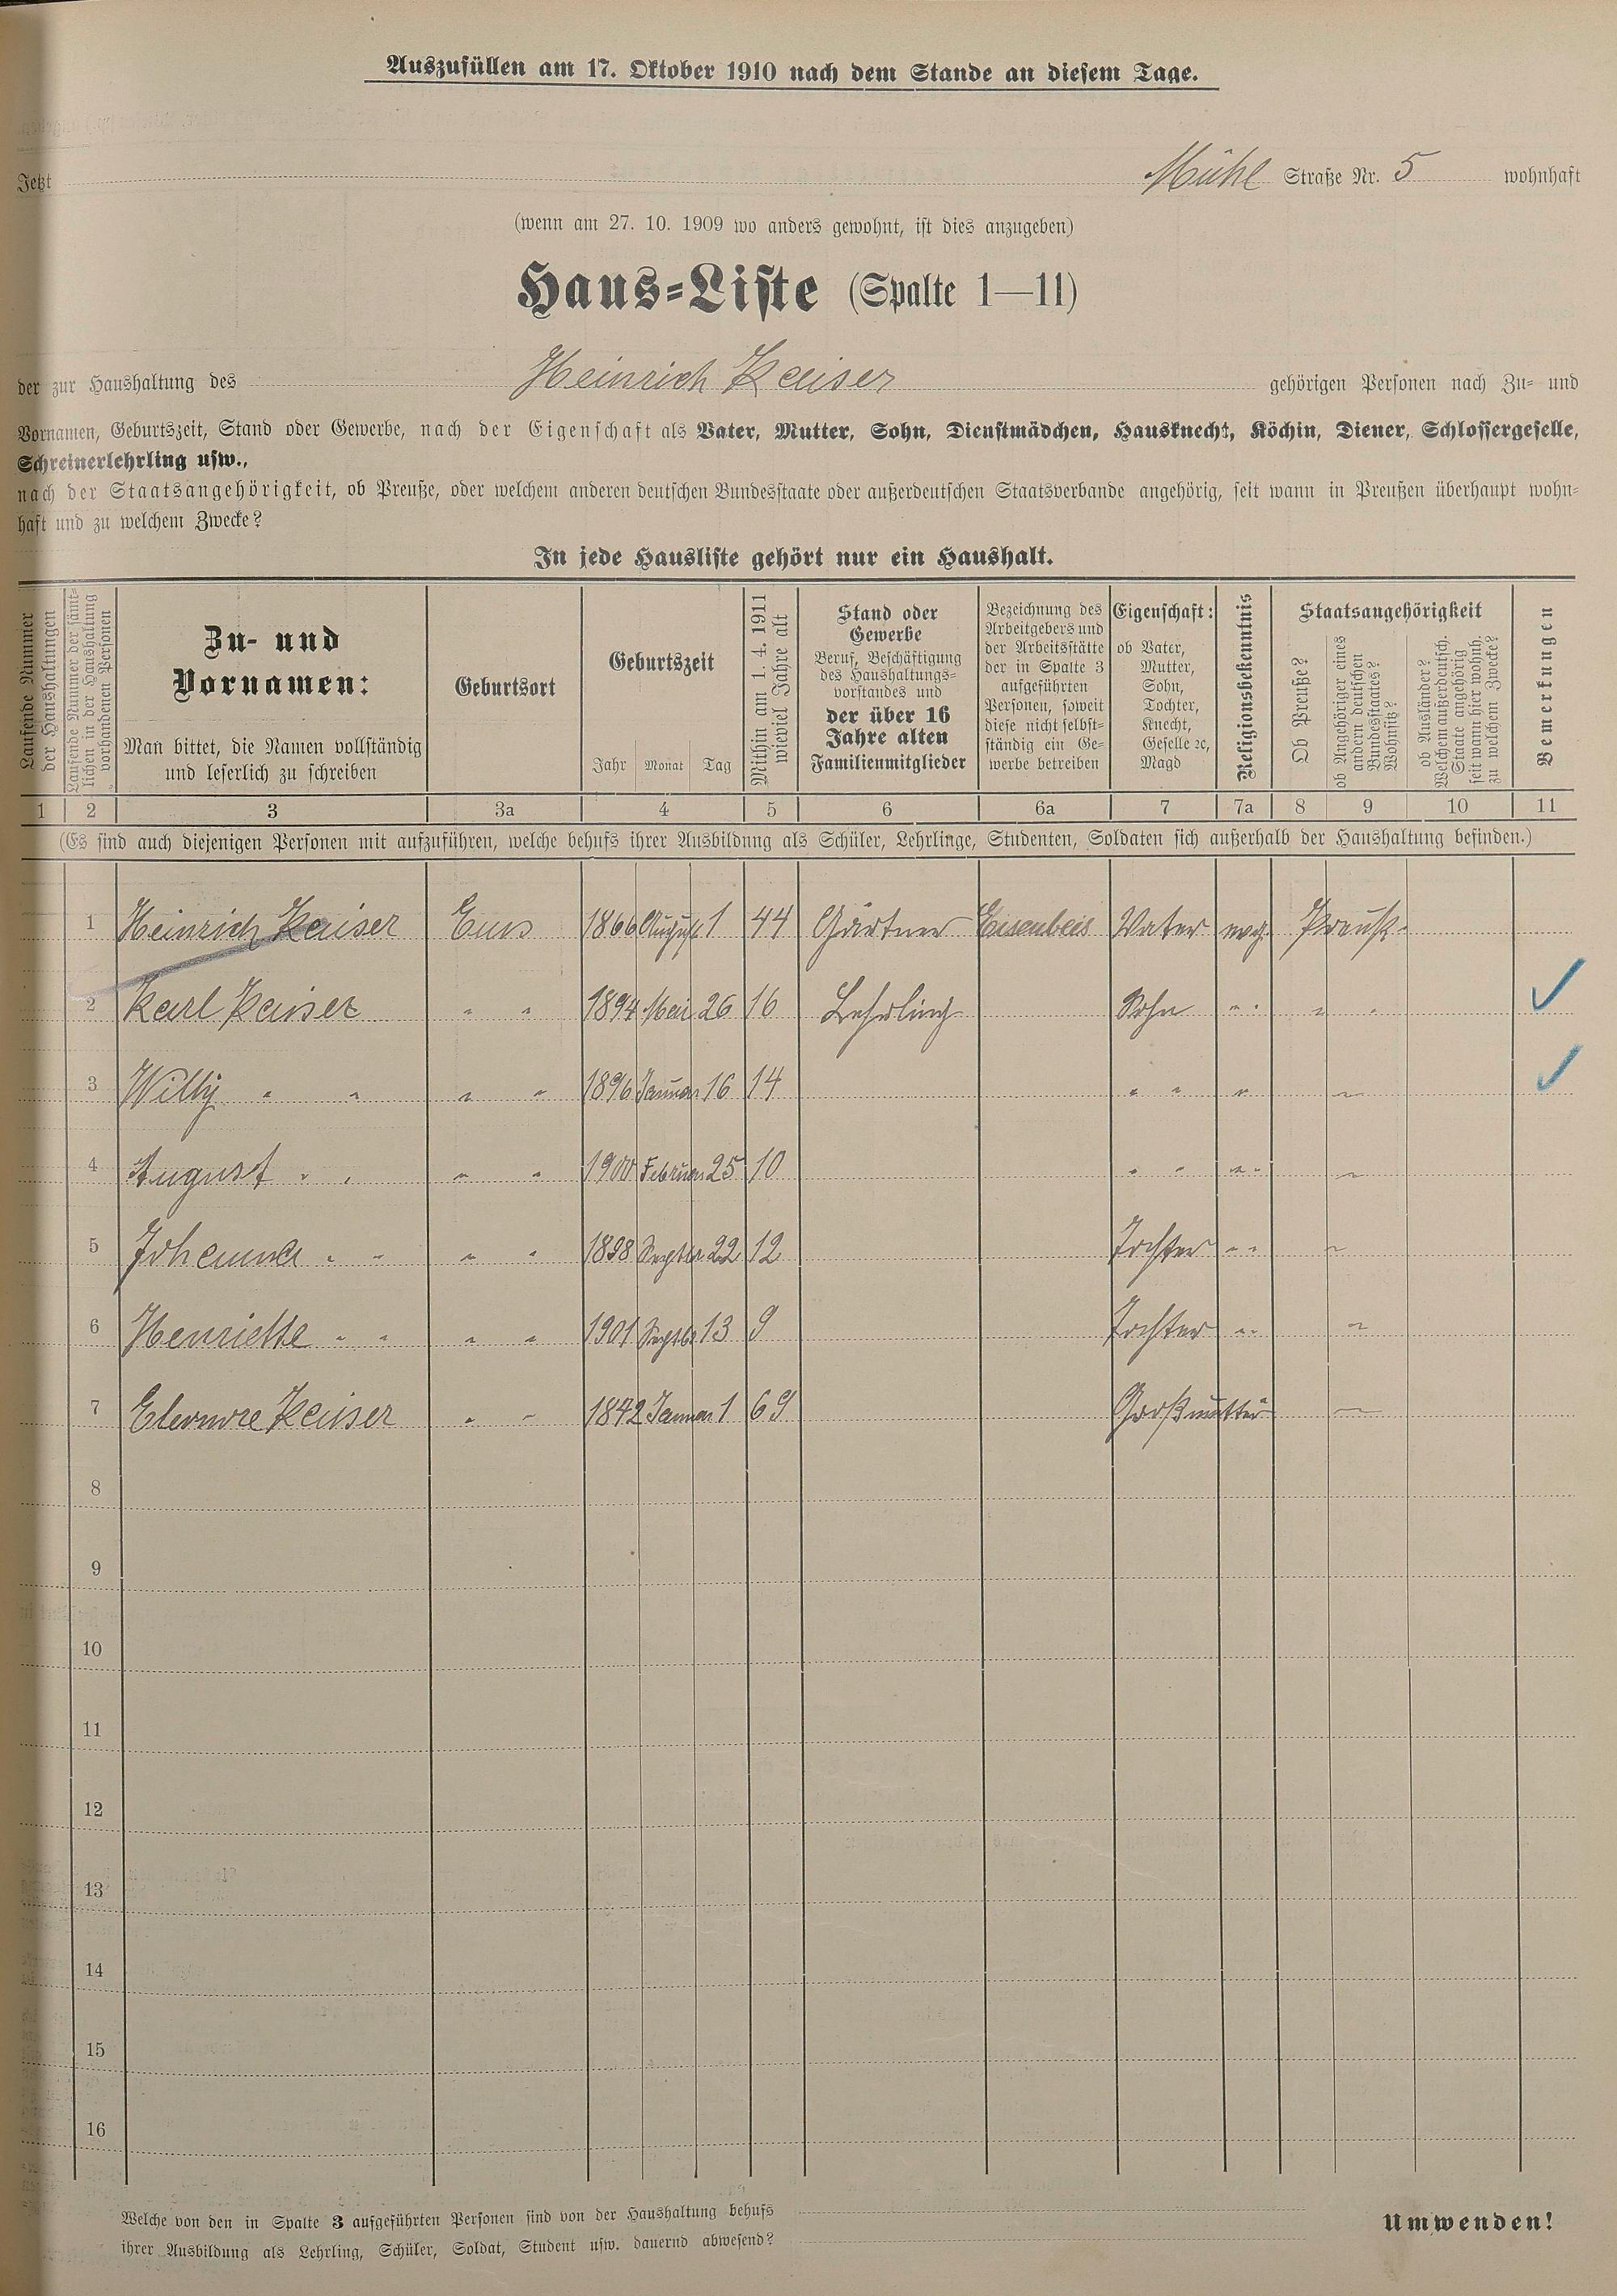 Auszufüllen am 17. Oktober 1910 nach dem Stande an diesem Tage.
Jetzt Mühl Straße Nr. 5 wohnhaft
(wenn am 27. 10. 1909 wo anders gewohnt, ist dies anzugeben)
Haus-Liste (Spalte 1—11)
der zur Haushaltung des Heinrich Kaiser gehörigen Personen nach Zu- und
Vornamen, Geburtszeit, Stand oder Gewerbe, nach der Eigenschaft als Vater, Mutter, Sohn, Dienstmädchen, Hausknecht, Köchin, Diener, Schlossergeselle,
Schreinerlehrling usw.,
nach der Staatsangehörigkeit, ob Preuße, oder welchem anderen deutschen Bundesstaate oder außerdeutschen Staatsverbande angehörig, seit wann in Preußen überhaupt wohn-
haft und zu welchem Zwecke?
In jede Hausliste gehört nur ein Haushalt.
Laufende Nummer
der Haushaltungen
Laufende Nummer der sämt-
lichen in der Haushaltung
vorhandenen Personen
Zu- und
Vornamen:
Man bittet, die Namen vollständig
und leserlich zu schreiben
Geburtsort
Geburtszeit
Jahr Monat Tag
Mithin am 1. 4. 1911
wieviel Jahre alt
Stand oder
Gewerbe
Beruf, Beschäftigung
des Haushaltungs-
vorstandes und
der über 16
Jahre alten
Familienmitglieder
Bezeichnung des
Arbeitgebers und
der Arbeitsstätte
der in Spalte 3
aufgeführten
Personen, soweit
diese nicht selbst-
ständig ein Ge-
werbe betreiben
Eigenschaft:
ob Vater,
Mutter,
Sohn,
Tochter,
Knecht,
Geselle ꝛc,
Magd
Religionsbekenntnis
Staatsangehörigkeit
Ob Preuße?
ob Angehöriger eines
andern deutschen
Bundesstaates?
Wohnsitz?
ob Ausländer?
Welchem außerdeutsch.
Staate angehörig
seit wann hier wohnh.
zu welchem Zwecke?
Bemerkungen
1 2 3 3a 4 5 6 6a 7 7a 8 9 10 11
(Es sind auch diejenigen Personen mit aufzuführen, welche behufs ihrer Ausbildung als Schüler, Lehrlinge, Studenten, Soldaten sich außerhalb der Haushaltung befinden.)
1 Heinrich Kaiser Ems 1866 August 1 44 Gärtner Eisenbeis Vater evg. Preuß.
2 Karl Kaiser " " 1894 Mai 26 16 Lehrling Sohn " " " " ✓
3 Willy " " " " 1896 Januar 16 14 " " " " ✓
4 August " " " " 1900 Februar 25 10 " " " " "
5 Johanna " " " " 1898 Septbr 22 12 Tochter " " "
6 Henriette " " " " 1901 Septbr 13 9 Tochter " " "
7 Elenore Kaiser " " 1842 Januar 1 69 Großmutter "
8
9
10
11
12
13
14
15
16
Welche von den in Spalte 3 aufgeführten Personen sind von der Haushaltung behufs
ihrer Ausbildung als Lehrling, Schüler, Soldat, Student usw. dauernd abwesend?
Umwenden!